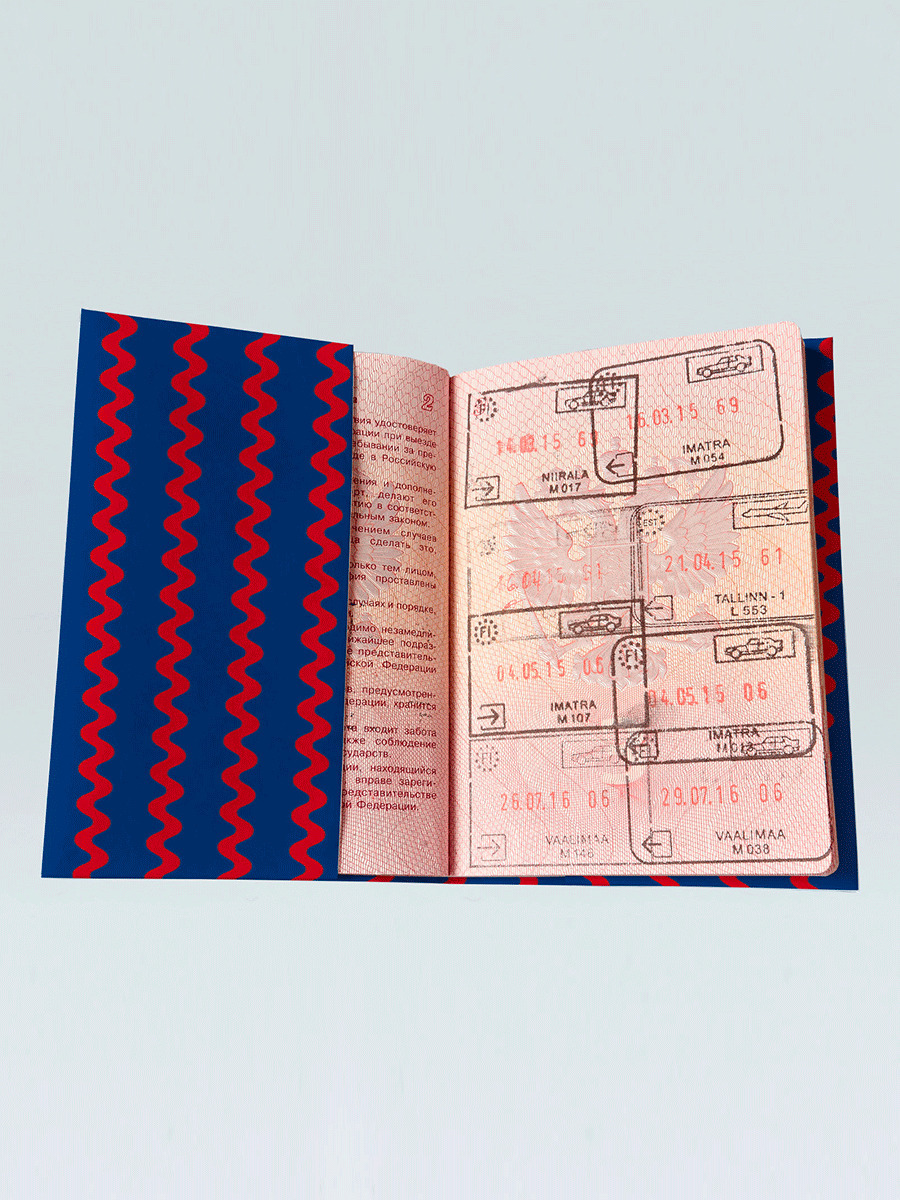 2
вия удостоверяет
рации при выезде
ебывании за пре-
де в Российскую
ения и дополне-
рт, делают его
тию в соответст-
льным законом.
чением случаев
да сделать это,
олько тем лицом,
фия проставлены
случаях и порядке,
димо незамедли-
ижайшее подраз-
е представитель-
йской Федерации
в, предусмотрен-
дерации, хранится
та входит забота
кже соблюдение
государств.
ции, находящийся
вправе зареги-
редставительстве
ой Федерации.
FI
14.03.15 6
NIIRALA
M 017
16.03.15 69
IMATRA
M 054
EST
21.04.15 61
TALLINN - 1
L 553
FI
04.05.15 06
IMATRA
M 107
FI
04.05.15 06
IMATRA
M 013
26.07.16 06
VAALIMAA
M 146
29.07.16 06
VAALIMAA
M 038